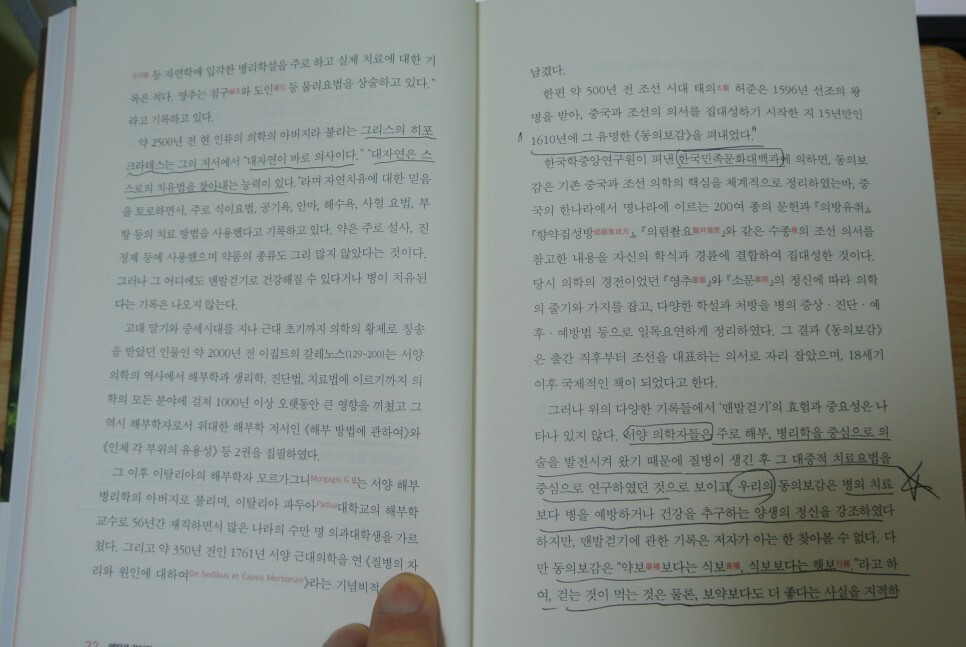 등 자연학에 입각한 병리학설을 주로 하고 실제 치료에 대한 기
록은 적다. 영추는 침구鍼灸와 도인導引 등 물리요법을 상술하고 있다.”
라고 기록하고 있다.
약 2500년 전 현 인류의 의학의 아버지라 불리는 그리스의 히포
크라테스는 그의 저서에서 “대자연이 바로 의사이다.” “대자연은 스
스로의 치유법을 찾아내는 능력이 있다.”라며 자연치유에 대한 믿음
을 토로하면서, 주로 식이요법, 공기욕, 안마, 해수욕, 사혈 요법, 부
항 등의 치료 방법을 사용했다고 기록하고 있다. 약은 주로 설사, 진
정제 등에 사용했으며 약품의 종류도 그리 많지 않았다는 것이다.
그러나 그 어디에도 맨발걷기로 건강해질 수 있다거나 병이 치유된
다는 기록은 나오지 않는다.
고대 말기와 중세시대를 지나 근대 초기까지 의학의 황제로 칭송
을 받았던 인물인 약 2000년 전 이집트의 갈레노스(129~200)는 서양
의학의 역사에서 해부학과 생리학, 진단법, 치료법에 이르기까지 의
학의 모든 분야에 걸쳐 1000년 이상 오랫동안 큰 영향을 끼쳤고 그
역시 해부학자로서 위대한 해부학 저서인 《해부 방법에 관하여》와
《인체 각 부위의 유용성》 등 2권을 집필하였다.
그 이후 이탈리아의 해부학자 모르가그니Morgagni G B는 서양 해부
병리학의 아버지로 불리며, 이탈리아 파두아Padua대학교의 해부학
교수로 56년간 재직하면서 많은 나라의 수만 명 의과대학생을 가르
쳤다. 그리고 약 350년 전인 1761년 서양 근대의학을 연 《질병의 자
리와 원인에 대하여De Sedibus et Causis Morborum》라는 기념비적
남겼다.
한편 약 500년 전 조선 시대 태의太醫 허준은 1596년 선조의 왕
명을 받아, 중국과 조선의 의서를 집대성하기 시작한 지 15년만인
1610년에 그 유명한 《동의보감》을 펴내었다.
한국학중앙연구원이 펴낸 한국민족문화대백과에 의하면, 동의보
감은 기존 중국과 조선 의학의 핵심을 체계적으로 정리하였는바, 중
국의 한나라에서 명나라에 이르는 200여 종의 문헌과 『의방유취』,
『향약집성방鄕藥集成方』, 『의림촬요醫林撮要』와 같은 수종種의 조선 의서를
참고한 내용을 자신의 학식과 경륜에 결합하여 집대성한 것이다.
당시 의학의 경전이었던 『영추靈樞』와 『소문素問』의 정신에 따라 의학
의 줄기와 가지를 잡고, 다양한 학설과 처방을 병의 증상·진단·예
후·예방법 등으로 일목요연하게 정리하였다. 그 결과 《동의보감》
은 출간 직후부터 조선을 대표하는 의서로 자리 잡았으며, 18세기
이후 국제적인 책이 되었다고 한다.
그러나 위의 다양한 기록들에서 ‘맨발걷기’의 효험과 중요성은 나
타나 있지 않다. 서양 의학자들은 주로 해부, 병리학을 중심으로 의
술을 발전시켜 왔기 때문에 질병이 생긴 후 그 대중적 치료요법을
중심으로 연구하였던 것으로 보이고, 우리의 동의보감은 병의 치료
보다 병을 예방하거나 건강을 추구하는 양생의 정신을 강조하였다
하지만, 맨발걷기에 관한 기록은 저자가 아는 한 찾아볼 수 없다. 다
만 동의보감은 “약보藥補보다는 식보食補, 식보보다는 행보行補.”라고 하
여, 걷는 것이 먹는 것은 물론, 보약보다도 더 좋다는 사실을 지적하